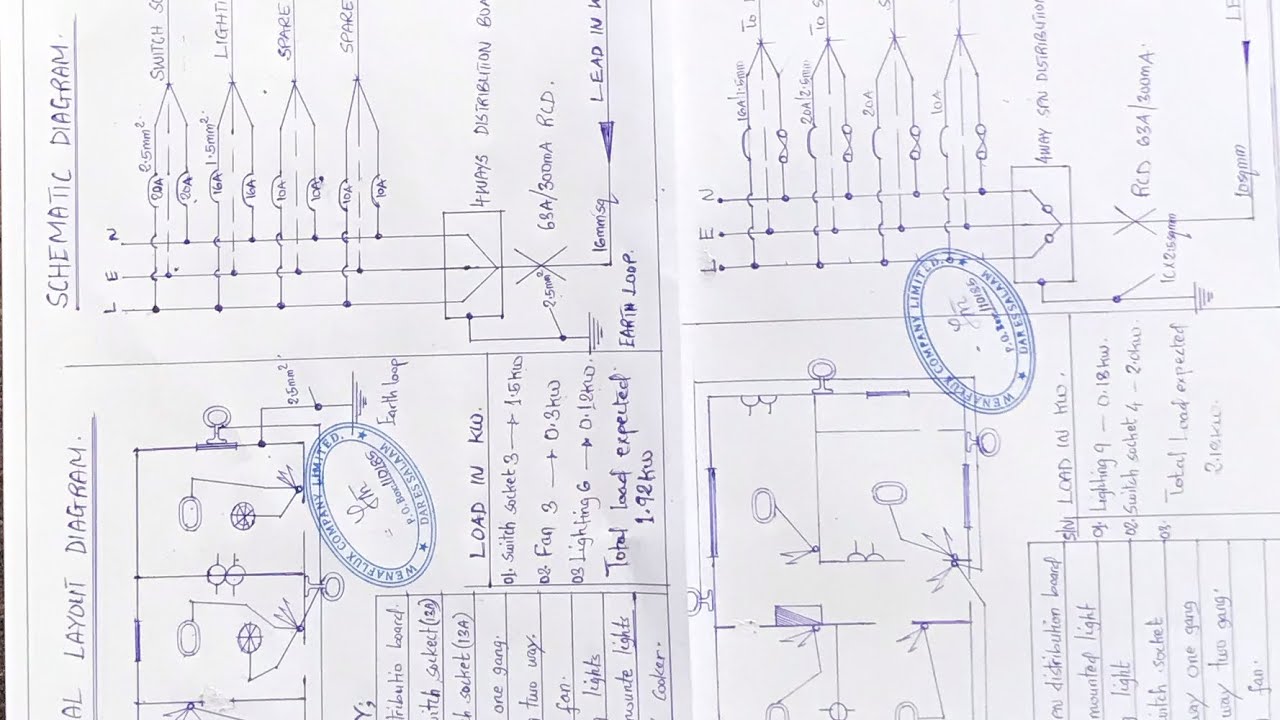 SCHEMATIC DIAGRAM.
SWITCH
LIGHTI
SPARE
SPARE
2.5mm²
1.5mm²
20A
20A
16A
16A
10A
10A
10A
10A
L E N
4WAYS DISTRIBUTION
63A/300mA RCD.
2.5mm²
16mmsq
LEAD IN
EARTH LOOP.
AL LAYOUT DIAGRAM.
2.5mm²
Earth loop
WENAFLUX COMPANY LIMITED.
P.O. Box 110185
DARESSALAAM
LOAD IN KW.
01. Switch socket 3 → 1.5KW
02. Fan 3 → 0.3KW
03 Lighting 6 → 0.12KW.
Total load expected.
1.92KW
tribution board.
witch socket (13A)
h socket (13A)
one gang.
two way.
fan.
lights
mounte lights
cooker.
To
To S
16A/1.5mm
20A/2.5mm
20A
10A
L E N
4WAY SPN DISTRIBUTION
RCD 63A/300mA.
1C×2.5sqmm
10sqmm
LE
WENAFLUX COMPANY LIMITED.
P.O. Box 110185
DARESSALAAM
S/N LOAD IN KW.
01. Lighting 9 – 0.18KW.
02. Switch socket 4 – 2.0KW.
03. Total Load expected
2.18KW.
distribution board
mounted light
light
witch socket
way one gang
way two gang.
fan.